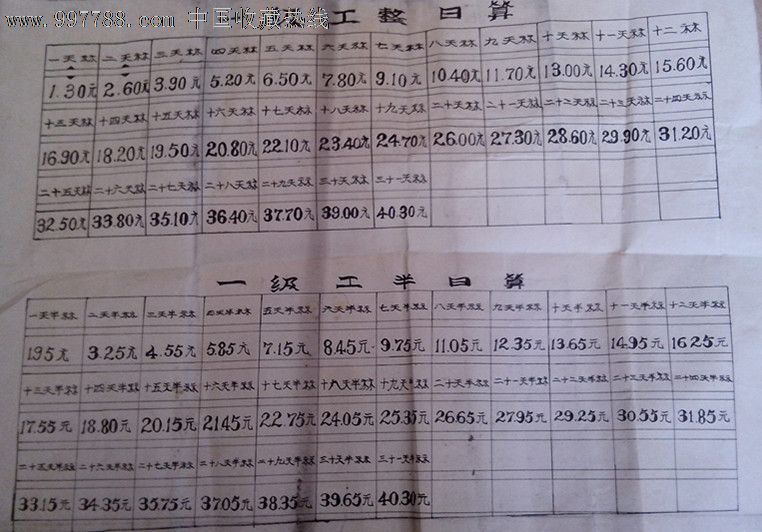 www.997788.com 中国收藏热线
级工整日算
一天 二天 三天 四天 五天 六天 七天 八天 九天 十天 十一天 十二
1.30元 2.60元 3.90元 5.20元 6.50元 7.80元 9.10元 10.40元 11.70元 13.00元 14.30元 15.60元
十三天 十四天 十五天 十六天 十七天 十八天 十九天 二十天 二十一天 二十二天 二十三天 二十四天
16.90元 18.20元 19.50元 20.80元 22.10元 23.40元 24.70元 26.00元 27.30元 28.60元 29.90元 31.20元
二十五天 二十六天 二十七天 二十八天 二十九天 三十天 三十一天
32.50元 33.80元 35.10元 36.40元 37.70元 39.00元 40.30元
一级工半日算
一天半 二天半 三天半 四天半 五天半 六天半 七天半 八天半 九天半 十天半 十一天半 十二天半
1.95元 3.25元 4.55元 5.85元 7.15元 8.45元 9.75元 11.05元 12.35元 13.65元 14.95元 16.25元
十三天半 十四天半 十五天半 十六天半 十七天半 十八天半 十九天半 二十天半 二十一天半 二十二天半 二十三天半 二十四天半
17.55元 18.80元 20.15元 21.45元 22.75元 24.05元 25.35元 26.65元 27.95元 29.25元 30.55元 31.85元
二十五天半 二十六天半 二十七天半 二十八天半 二十九天半 三十天半 三十一天
33.15元 34.35元 35.75元 37.05元 38.35元 39.65元 40.30元